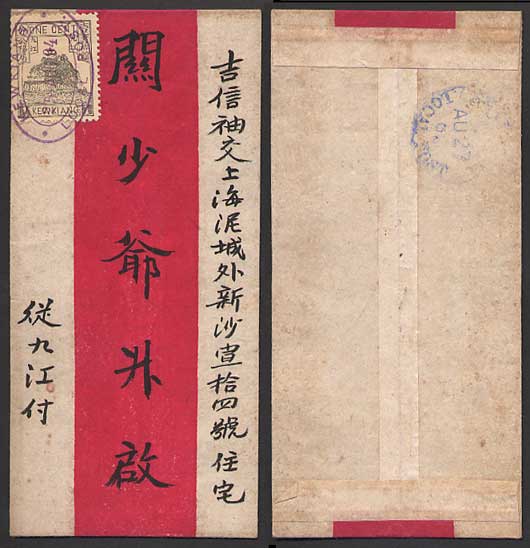 吉信袖交上海泥城外新沙宣拾四號住宅
關少爺升啟
從九江付
ONE CENT
KEWKIANG
LOCAL POST
AU 29
LOCAL